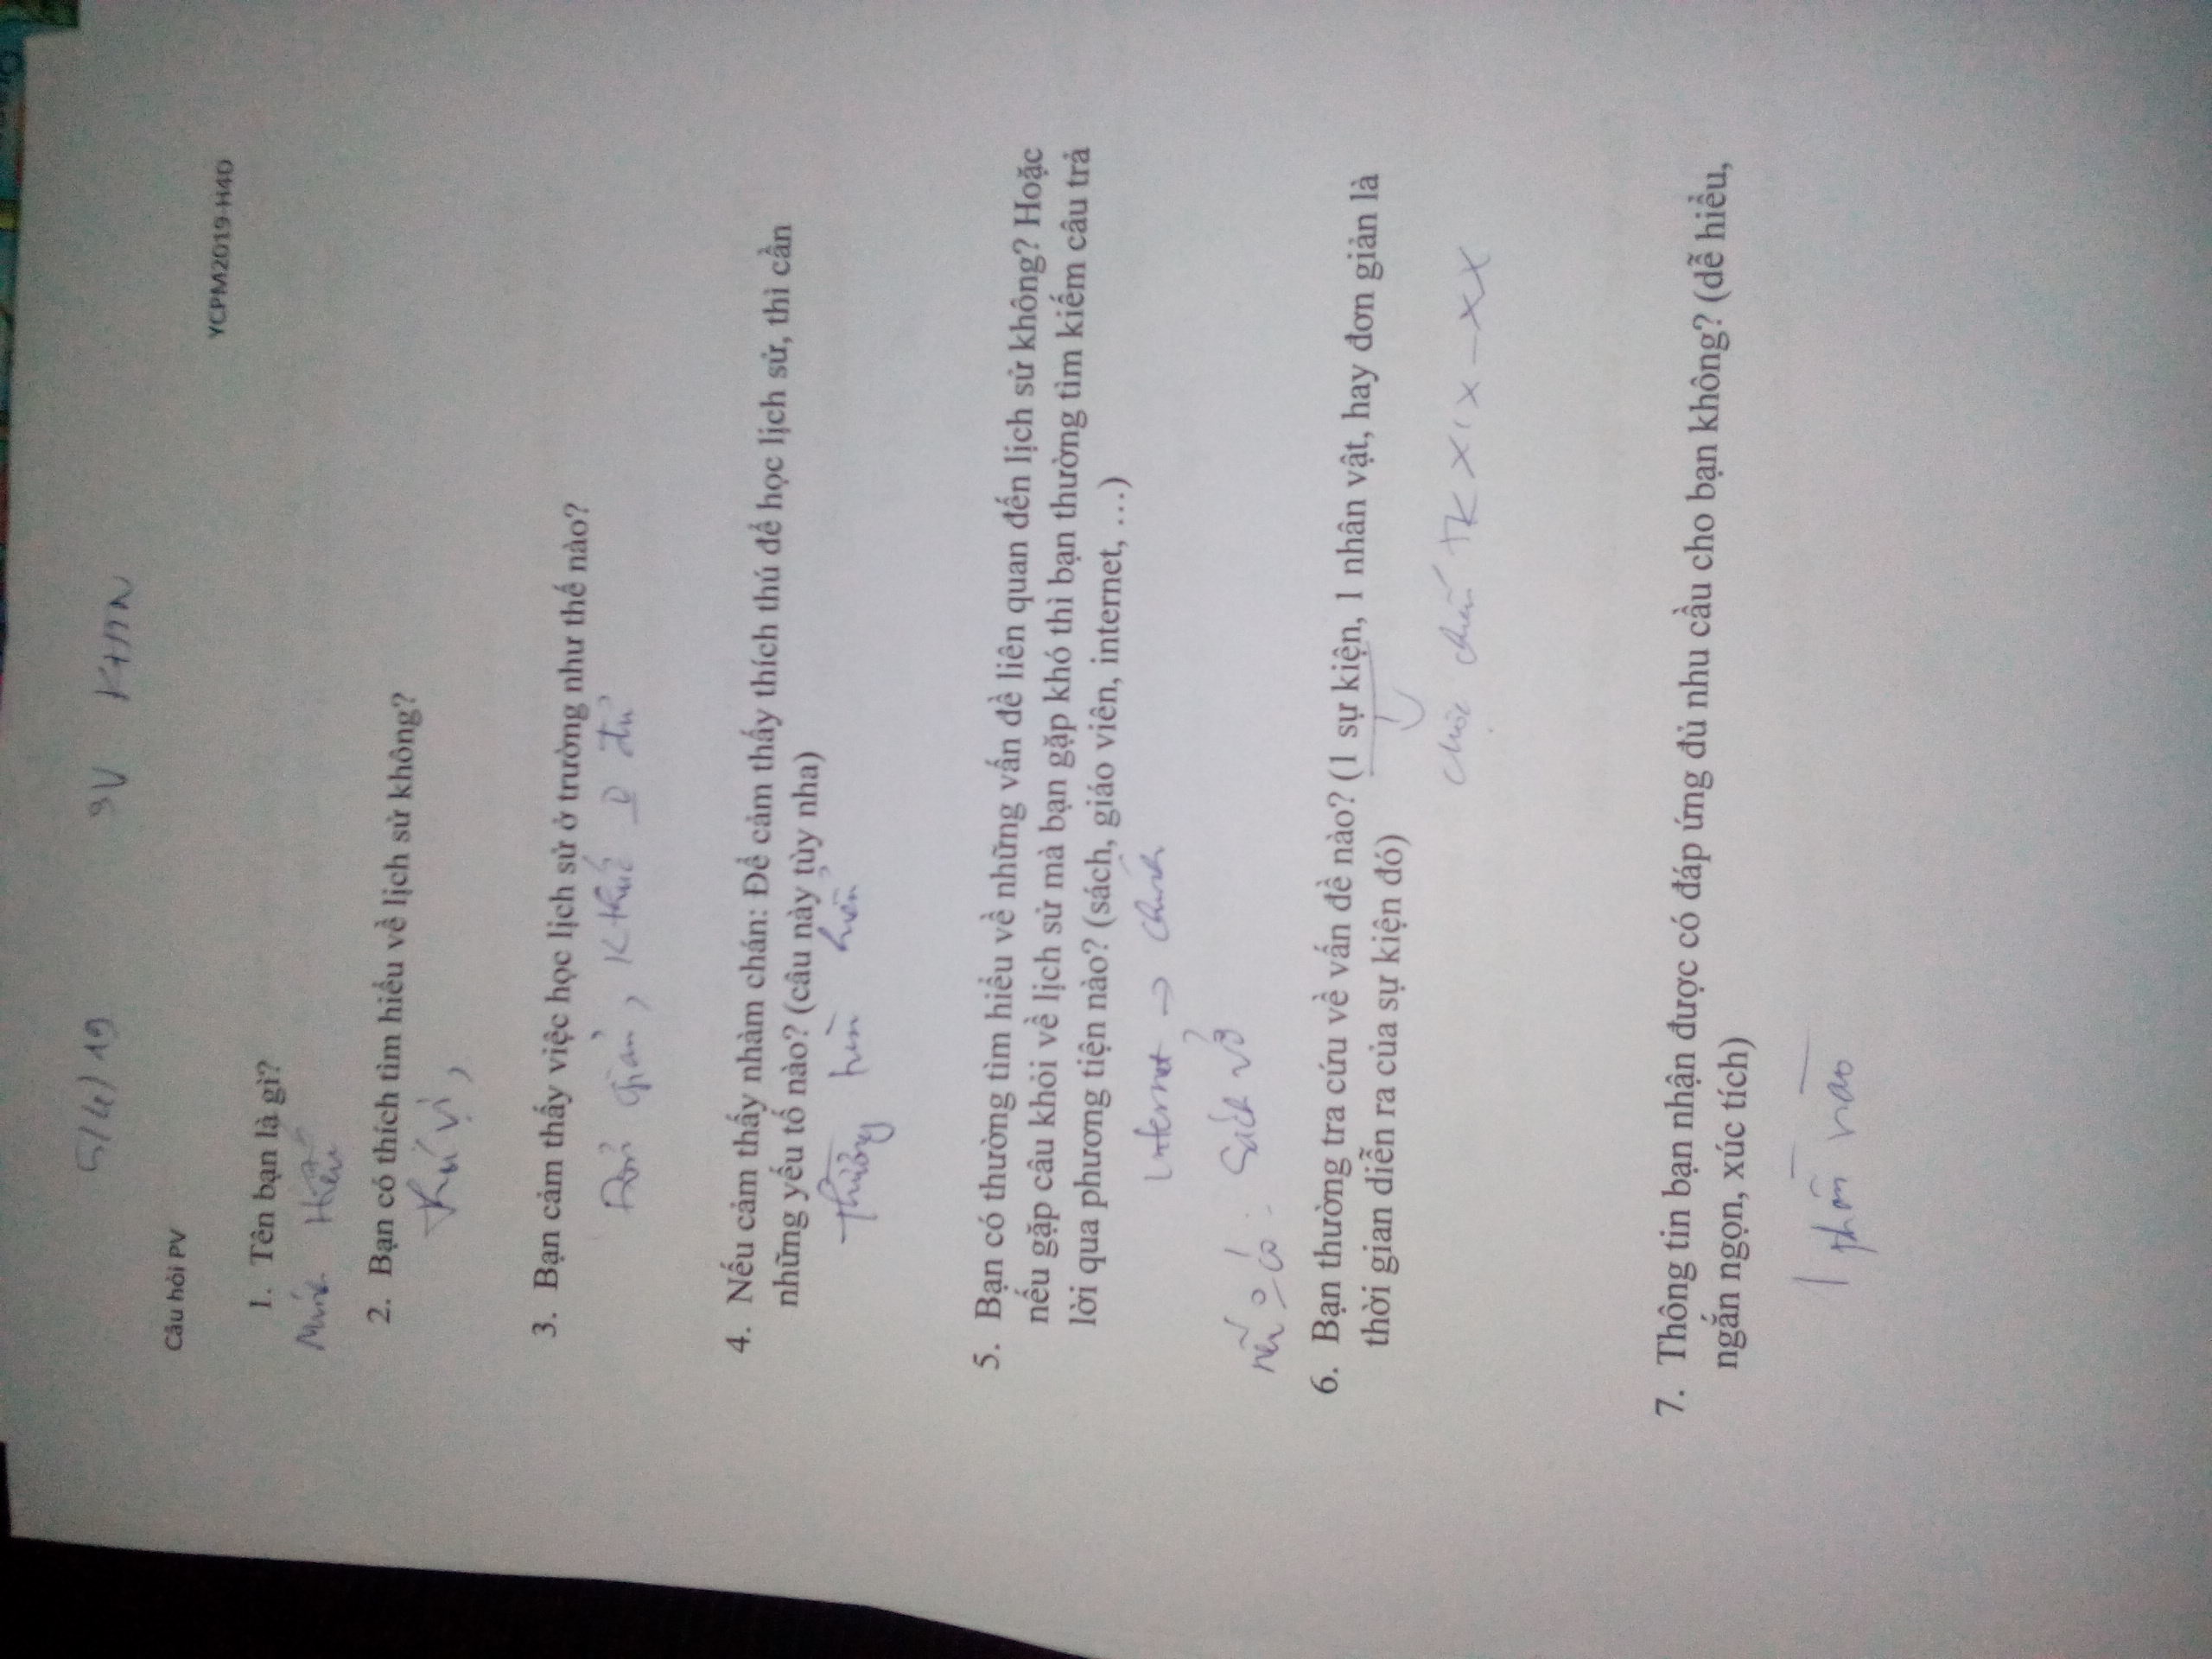 5/4/19 SV KHTN
Câu hỏi PV
YCPM2019-H4D
1. Tên bạn là gì?
Minh Hiếu
2. Bạn có thích tìm hiểu về lịch sử không?
thú vị,
3. Bạn cảm thấy việc học lịch sử ở trường như thế nào?
Đơn giản, K thức đủ
4. Nếu cảm thấy nhàm chán: Để cảm thấy thích thú để học lịch sử, thì cần
những yếu tố nào? (câu này tùy nha)
Thường tìm hiểu
5. Bạn có thường tìm hiểu về những vấn đề liên quan đến lịch sử không? Hoặc
nếu gặp câu khỏi về lịch sử mà bạn gặp khó thì bạn thường tìm kiếm câu trả
lời qua phương tiện nào? (sách, giáo viên, internet, …)
Internet → chính
nếu có: Sách vở
6. Bạn thường tra cứu về vấn đề nào? (1 sự kiện, 1 nhân vật, hay đơn giản là
thời gian diễn ra của sự kiện đó)
chiến TK XIX – XX
7. Thông tin bạn nhận được có đáp ứng đủ nhu cầu cho bạn không? (dễ hiểu,
ngắn ngọn, xúc tích)
1 phần nào